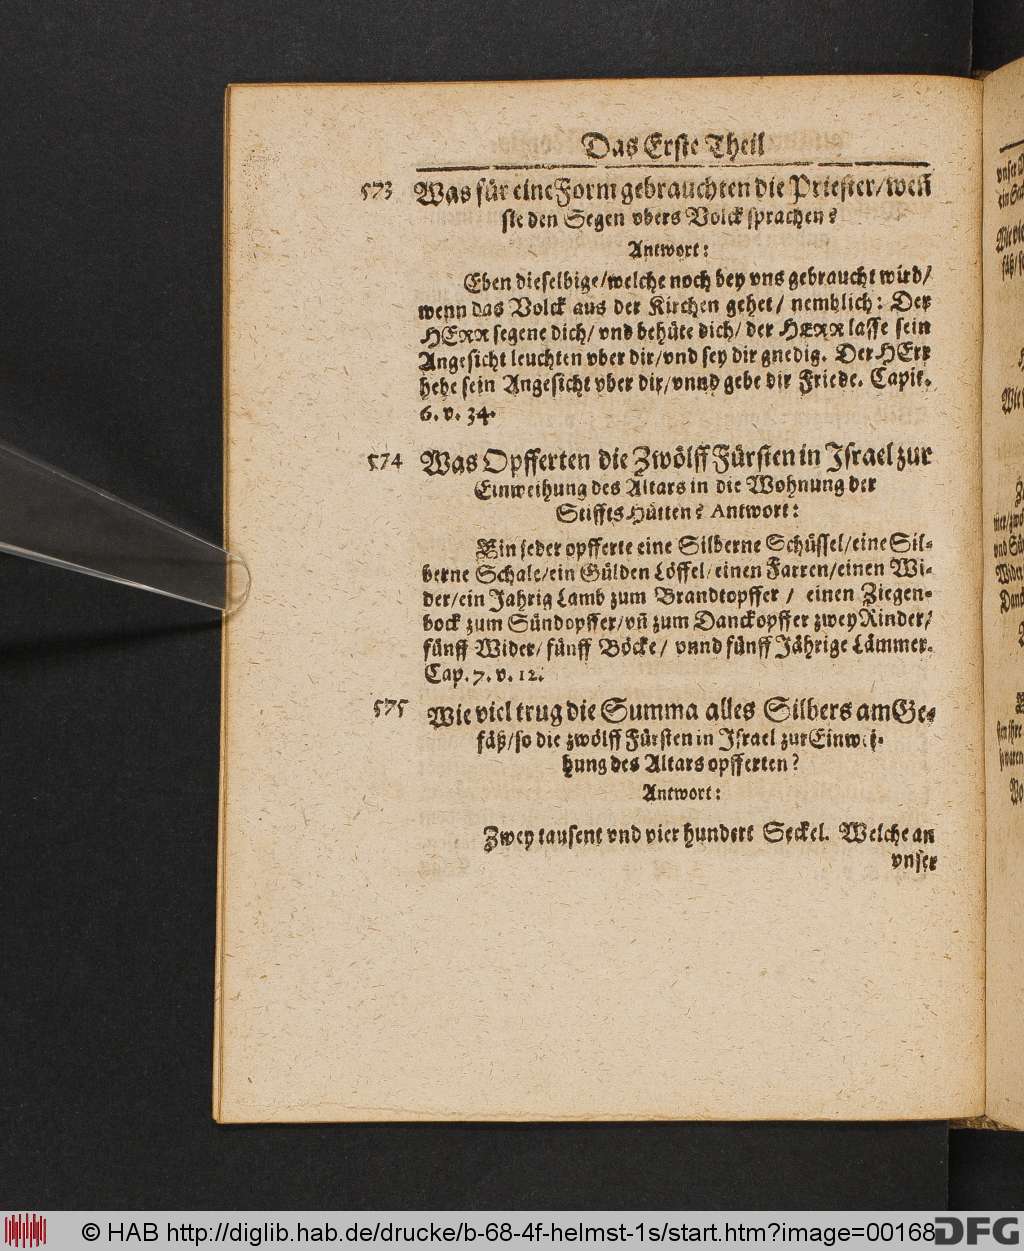 Das Erste Theil
573 Was für eine Form gebrauchten die Priester/ weñ
sie den Segen vbers Volck sprachen?
Antwort:
Eben dieselbige/welche noch bey vns gebraucht wird/
wenn das Volck aus der Kirchen gehet/ nemblich: Der
HERR segene dich/ vnd behüte dich/ der HERR lasse sein
Angesicht leuchten vber dir/vnd sey dir gnedig. Der HErr
hebe sein Angesicht vber dir/vnnd gebe dir Friede. Capit.
6. v. 34.
574 Was Opfferten die Zwölff Fürsten in Israel zur
Einweihung des Altars in die Wohnung der
Stiffts Hütten? Antwort:
Ein jeder opfferte eine Silberne Schüssel/eine Sil-
berne Schale/ein Gülden Löffel/einen Farren/einen Wi-
der/ein Jahrig Lamb zum Brandtopffer / einen Ziegen-
bock zum Sündopffer/vñ zum Danckopffer zwey Rinder/
fünff Wider/ fünff Böcke/ vnnd fünff Jährige Lämmer.
Cap. 7. v. 12.
575 Wie viel trug die Summa alles Silbers am Ge-
fäß/so die zwölff Fürsten in Israel zur Einwei-
hung des Altars opfferten?
Antwort:
Zwey tausent vnd vier hundert Seckel. Welche an
vnser
© HAB http://diglib.hab.de/drucke/b-68-4f-helmst-1s/start.htm?image=00168
DFG